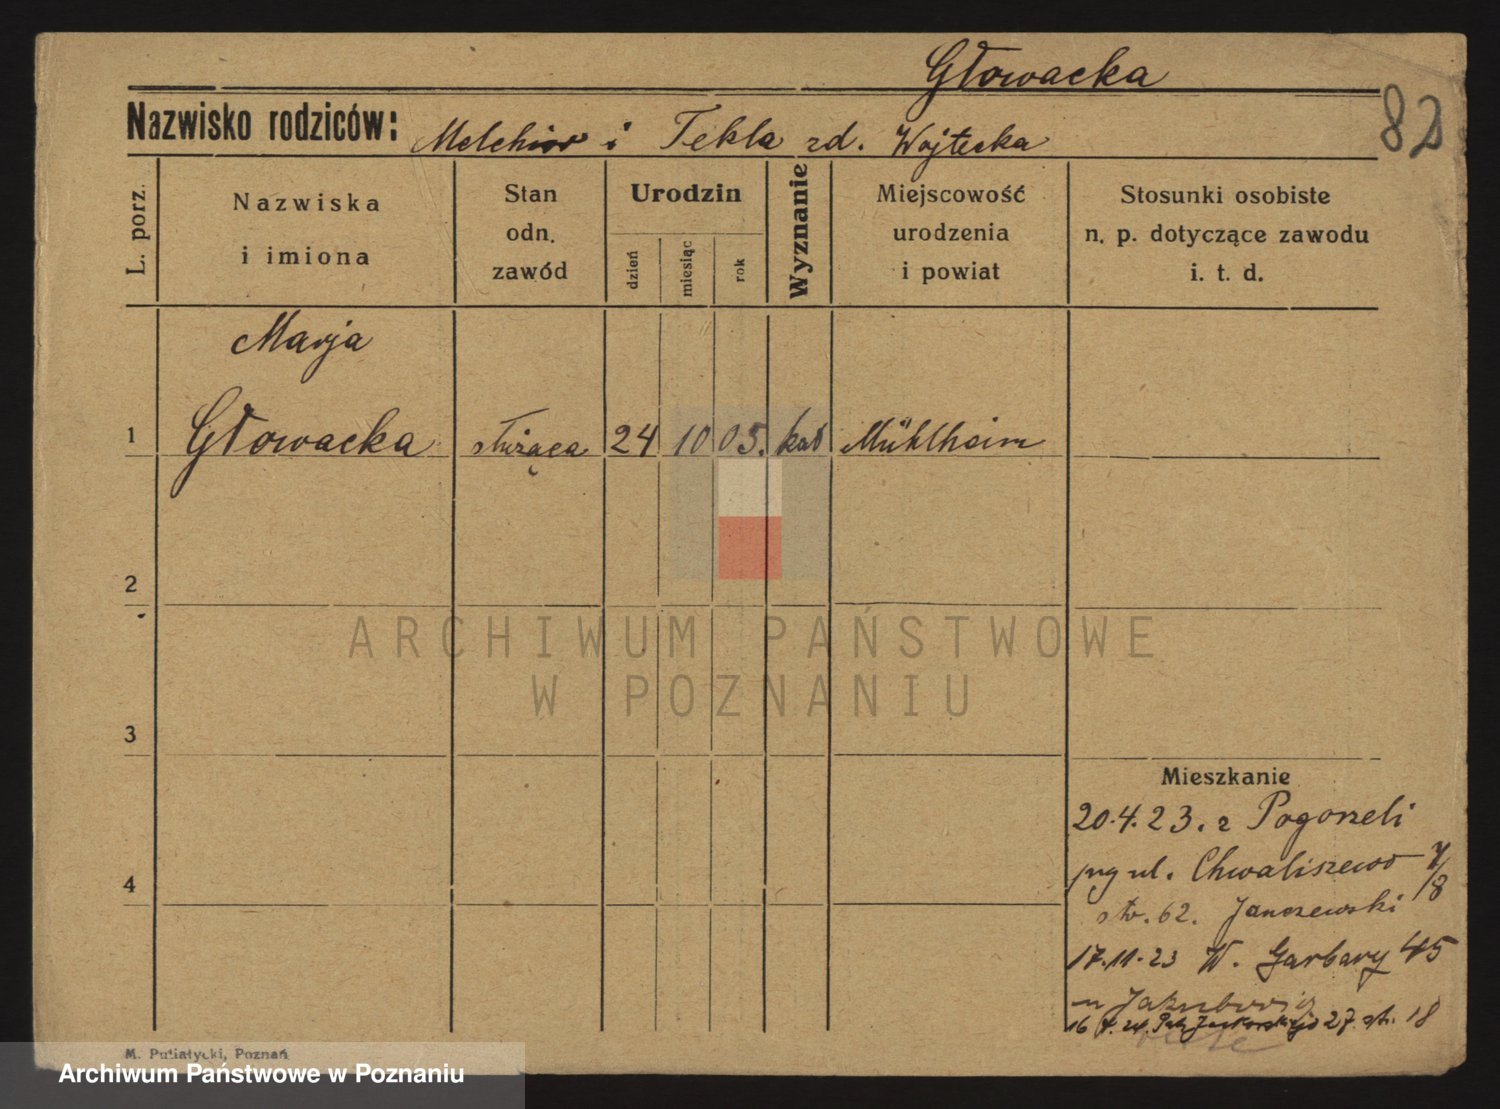 Głowacka
82
Nazwisko rodziców: Melchior i Tekla zd. Wojtecka
L. porz.
Nazwiska i imiona
Stan odn. zawód
Urodzin
dzień
miesiąc
rok
Wyznanie
Miejscowość urodzenia i powiat
Stosunki osobiste n. p. dotyczące zawodu i. t. d.
Marja
1 Głowacka służąca 24 10 05. kat Mühlheim
2
3
4
ARCHIWUM PAŃSTWOWE
W POZNANIU
Mieszkanie
20.4.23. z Pogorzeli
ul. Chwaliszewo 7/8
str. 62. Janczewski
17.11.23 W. Garbary 45
16 7. 24. 27. str. 18
M. Putiatycki, Poznań
Archiwum Państwowe w Poznaniu